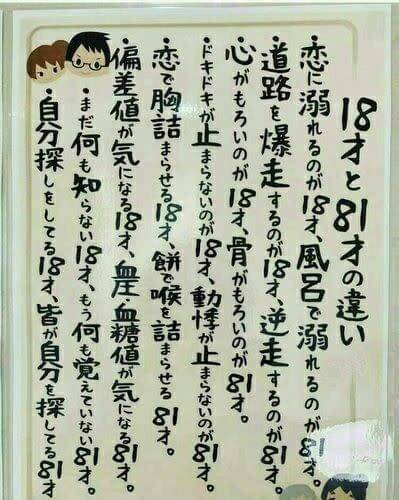 18才と81才の違い
・恋に溺れるのが18才、風呂で溺れるのが81才。
・道路を爆走するのが18才、逆走するのが81才。
・心がもろいのが18才、骨がもろいのが81才。
・ドキドキが止まらないのが18才、動悸が止まらないのが81才。
・恋で胸詰まらせる18才、餅で喉を詰まらせる81才。
・偏差値が気になる18才、血圧・血糖値が気になる81才。
・まだ何も知らない18才、もう何も覚えていない81才。
・自分探しをしてる18才、皆が自分を探してる81才